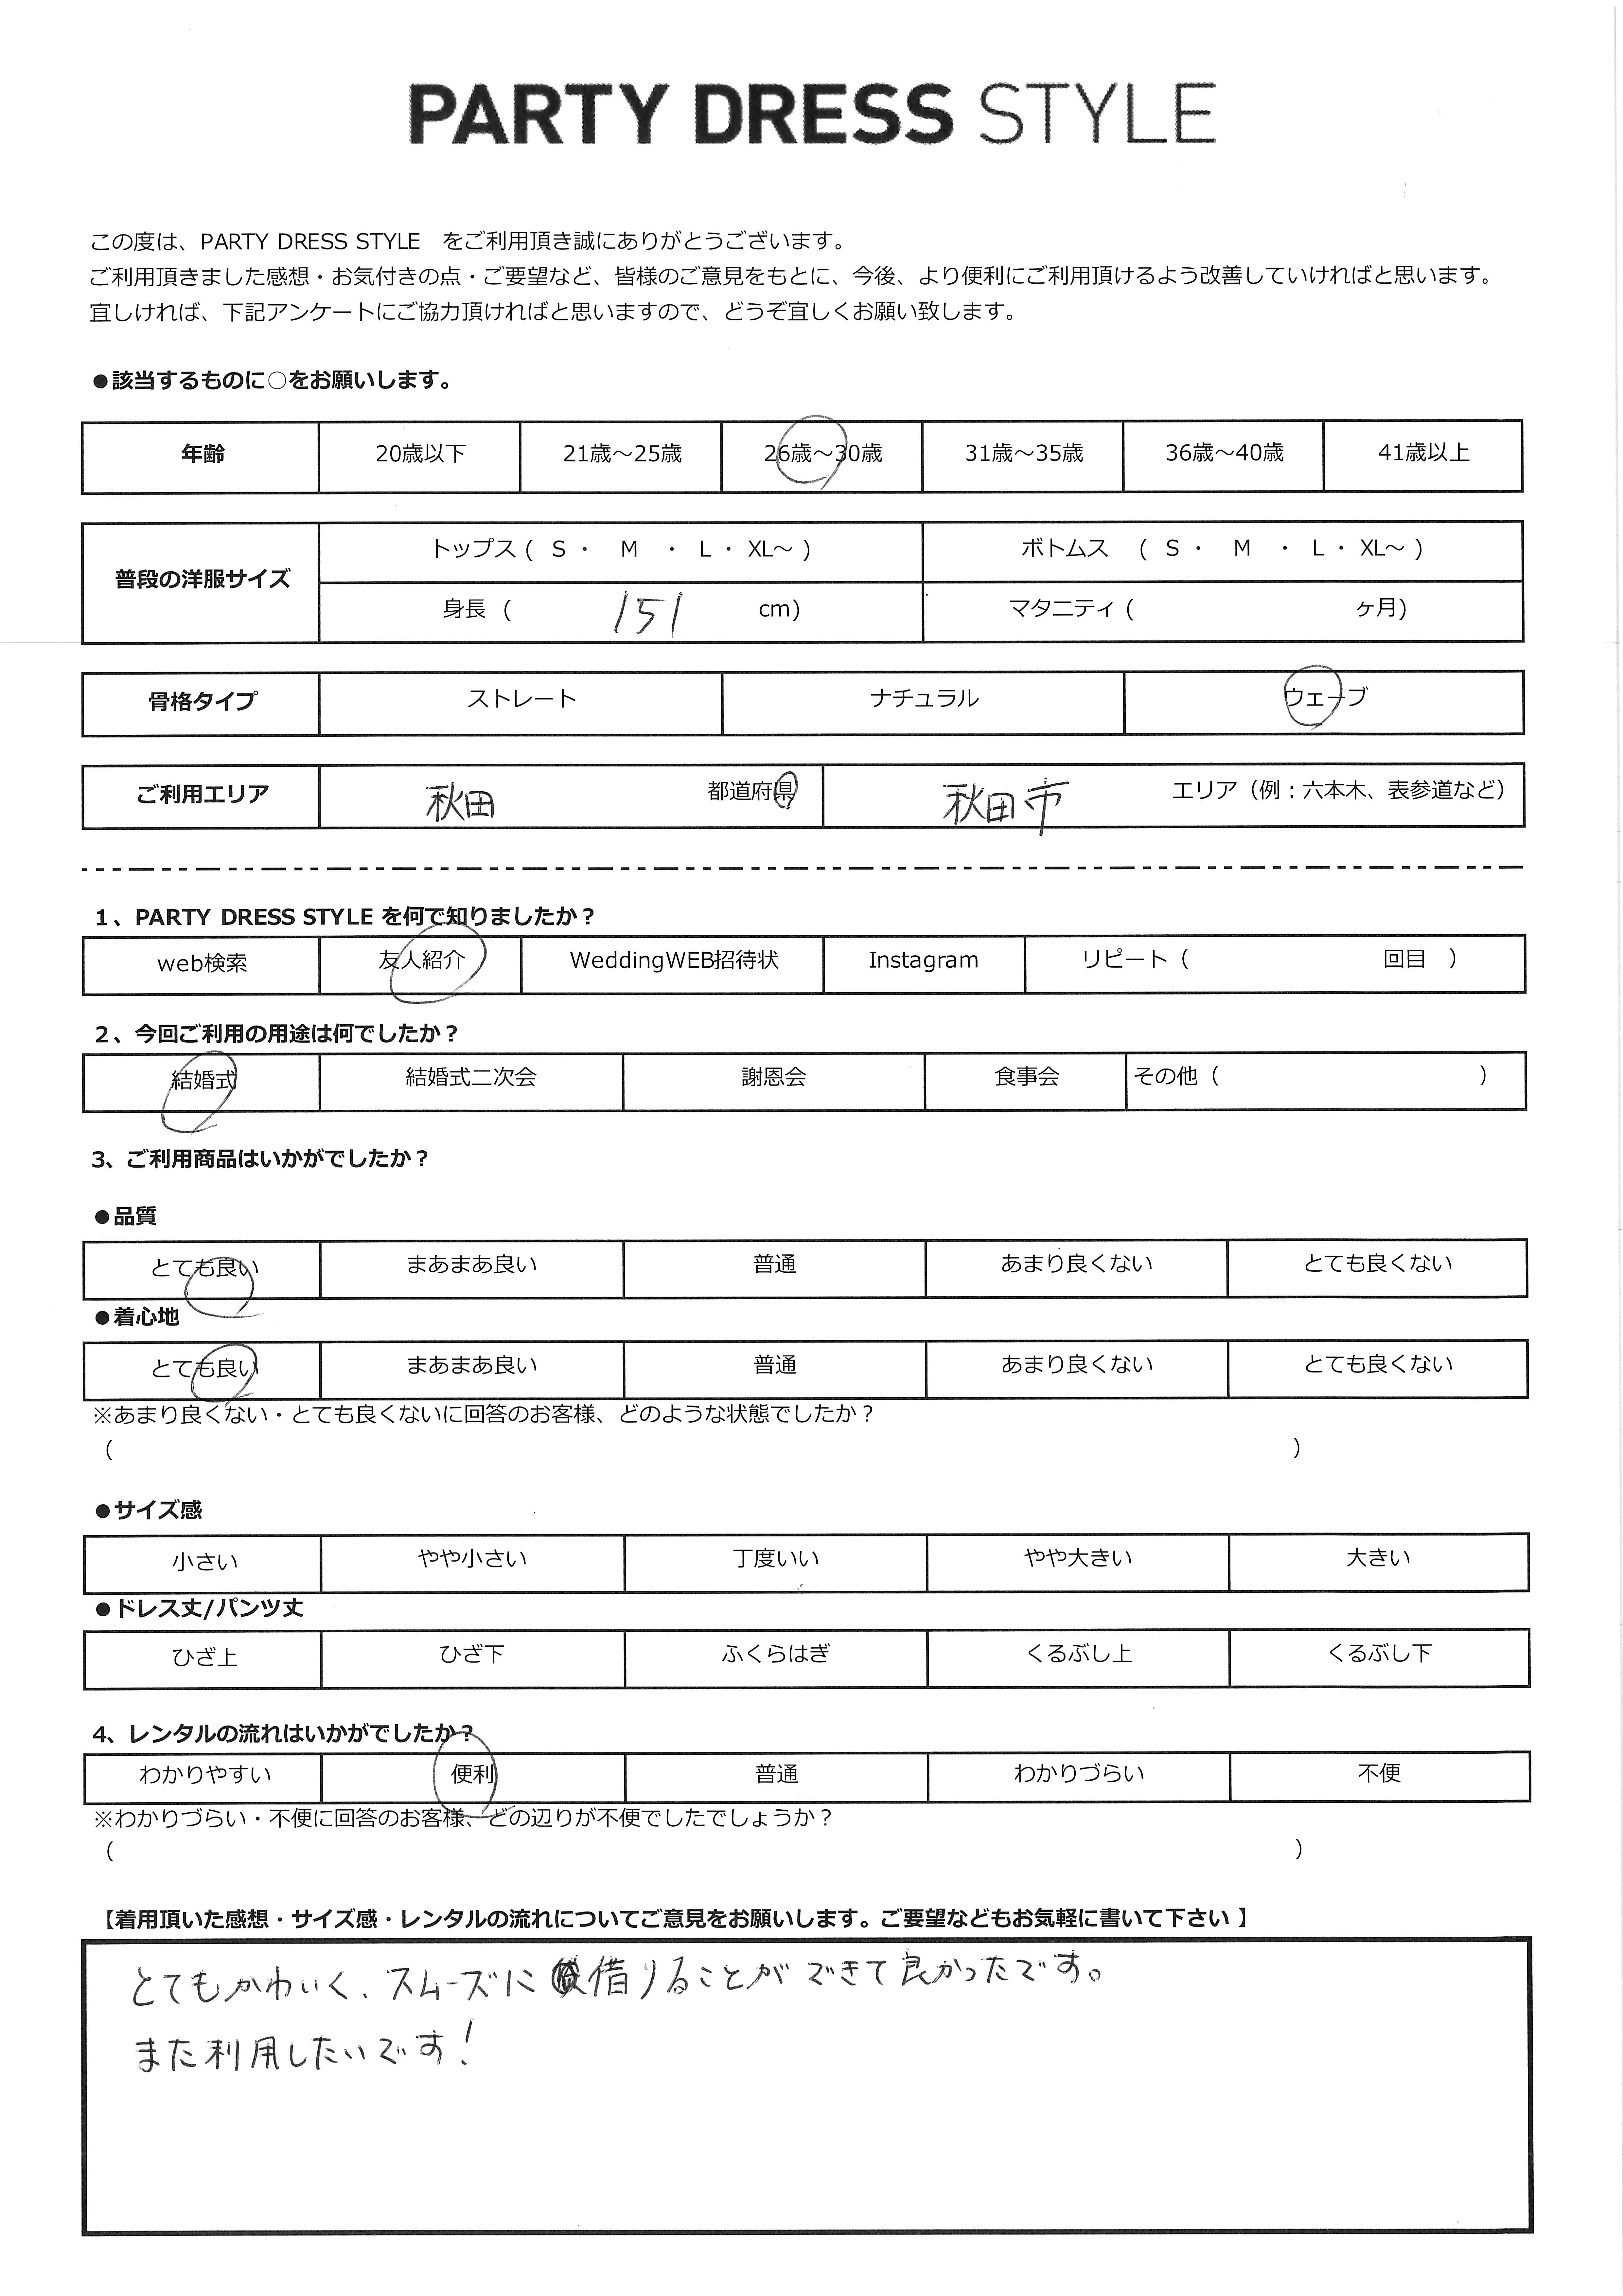 PARTY DRESS STYLE
この度は、PARTY DRESS STYLE　をご利用頂き誠にありがとうございます。
ご利用頂きました感想・お気付きの点・ご要望など、皆様のご意見をもとに、今後、より便利にご利用頂けるよう改善していければと思います。
宜しければ、下記アンケートにご協力頂ければと思いますので、どうぞ宜しくお願い致します。
●該当するものに○をお願いします。
年齢 20歳以下 21歳～25歳 26歳～30歳 31歳～35歳 36歳～40歳 41歳以上
普段の洋服サイズ
トップス ( S ・ M ・ L ・ XL～ ) ボトムス ( S ・ M ・ L ・ XL～ )
身長 ( 151 cm) マタニティ ( ヶ月)
骨格タイプ ストレート ナチュラル ウェーブ
ご利用エリア 秋田 都道府県 秋田市 エリア（例：六本木、表参道など）
1、PARTY DRESS STYLE を何で知りましたか？
web検索 友人紹介 WeddingWEB招待状 Instagram リピート（ 回目 ）
2、今回ご利用の用途は何でしたか？
結婚式 結婚式二次会 謝恩会 食事会 その他（ ）
3、ご利用商品はいかがでしたか？
●品質
とても良い まあまあ良い 普通 あまり良くない とても良くない
●着心地
とても良い まあまあ良い 普通 あまり良くない とても良くない
※あまり良くない・とても良くないに回答のお客様、どのような状態でしたか？
（ ）
●サイズ感
小さい やや小さい 丁度いい やや大きい 大きい
●ドレス丈/パンツ丈
ひざ上 ひざ下 ふくらはぎ くるぶし上 くるぶし下
4、レンタルの流れはいかがでしたか？
わかりやすい 便利 普通 わかりづらい 不便
※わかりづらい・不便に回答のお客様、どの辺りが不便でしたでしょうか？
（ ）
【着用頂いた感想・サイズ感・レンタルの流れについてご意見をお願いします。ご要望などもお気軽に書いて下さい 】
とてもかわいく、スムーズに借りることができて良かったです。
また利用したいです！